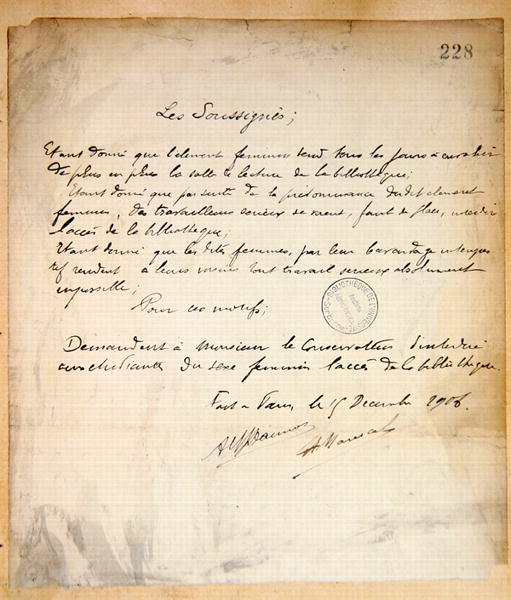 228
Les Soussignés;
Etant donné que l'élément féminin tend tous les jours à envahir
de plus en plus la salle de lecture de la bibliothèque;
Etant donné que par suite de la prédominance dudit élément
femmes, des travailleurs sérieux se voient, faute de place, interdir
l'accès de la bibliothèque;
Etant donné que les dites femmes, par leur bavardage
rendent à leurs voisins tout travail sérieux absolument
impossible;
Pour ces motifs;
BIBLIOTHÈQUE DE L'UNIVERSITÉ
Demandent à Monsieur le Conservateur d'interdire
aux étudiantes du sexe féminin l'accès de la bibliothèque.
Fait à Paris, le 15 Décembre 1906.